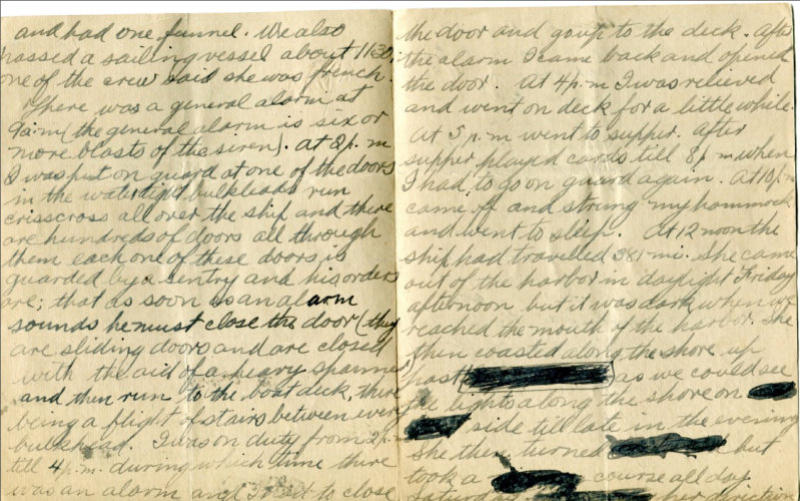 and had one funnel. We also
passed a sailing vessel about 1130,
one of the crew said she was french.
There was a general alarm at
9a.m (the general alarm is six or
more blasts of the siren). at 2 p.m
I was put on guard at one of the doors
in the watertight bulkleads run
crisscross all over the ship and there
are hundreds of doors all through
them each one of these doors is
guarded by a sentry and his orders
are; that as soon as an alarm
sounds he must close the door (they
are sliding doors and are closed
with the aid of a heavy spanner)
and then run to the boat deck, there
being a flight of stairs between every
bulkhead. I was on duty from 2 p.m
till 4 p.m. during which time there
was an alarm and I had to close
the door and go up to the deck. After
the alarm I came back and opened
the door. At 4 p.m I was relieved
and went on deck for a little while.
At 5 p.m went to supper. After
supper played cards till 8 p.m when
I had to go on guard again. At 10 p.m
came off and strung my hammock
and went to sleep. At 12 noon the
ship had travelled 381 mi. She came
out of the harbor in daylight Friday
afternoon but it was dark when we
reached the mouth of the harbor. She
then coasted along the shore up
past as we could see
the lights along the shore on
side till late in the evening
She then turned but
took a course all day
Saturday her direction